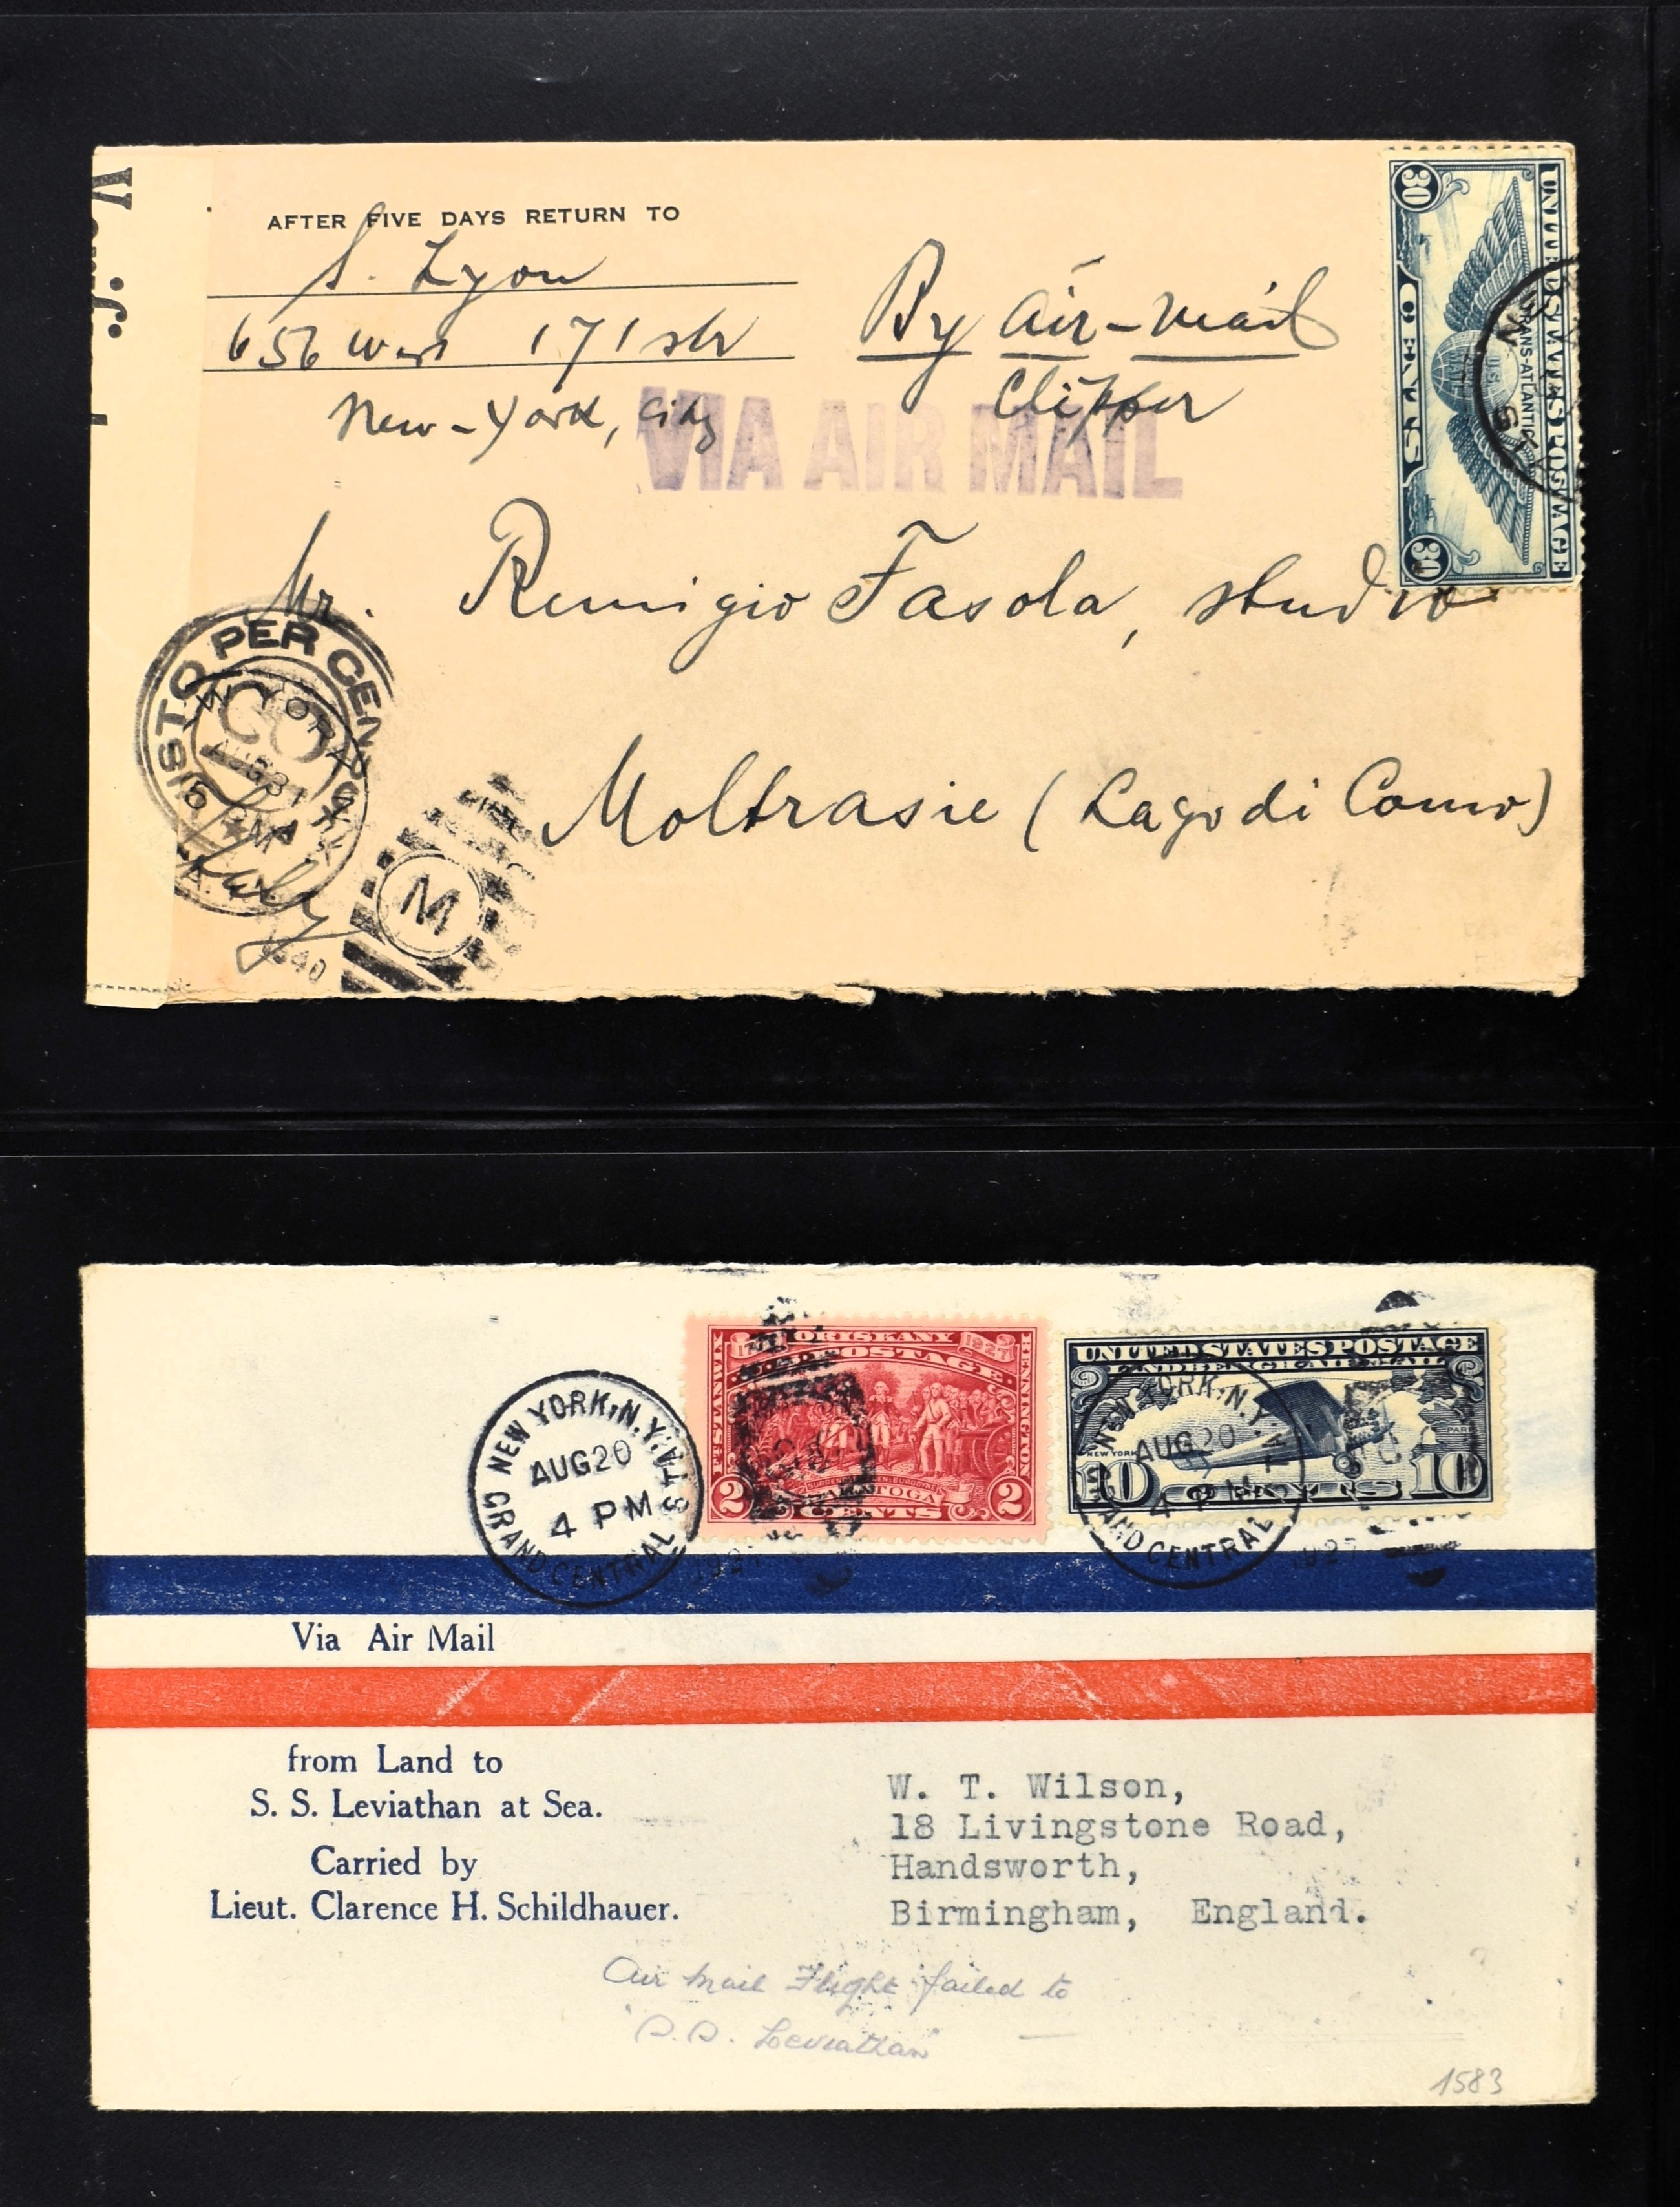 AFTER FIVE DAYS RETURN TO
S. Lyon
656 West 171 str
New-York, City
By Air-Mail
Clipper
VIA AIR MAIL
UNITED STATES POSTAGE
TRANS-ATLANTIC
U.S.
CENTS
30
30
N.Y.
STA
Mr. Remigio Fasola, studio
Moltrasie (Lago di Como)
PER CEN
YORK
AUG 31
5
1940
M
FT. STANWIX
ORISKANY
BENNINGTON
1777
1927
U.S. POSTAGE
SURRENDER OF GEN. BURGOYNE
SARATOGA
2 CENTS 2
UNITED STATES POSTAGE
LINDBERGH AIR MAIL
NEW YORK
PARIS
10 CENTS 10
NEW YORK, N.Y.
AUG 20
4 PM
GRAND CENTRAL STA.
1927
NEW YORK, N.Y.
AUG 20
4 PM
GRAND CENTRAL
1927
Via Air Mail
from Land to
S. S. Leviathan at Sea.
Carried by
Lieut. Clarence H. Schildhauer.
W. T. Wilson,
18 Livingstone Road,
Handsworth,
Birmingham, England.
Air Mail Flight failed to
"S.S. Leviathan"
1583